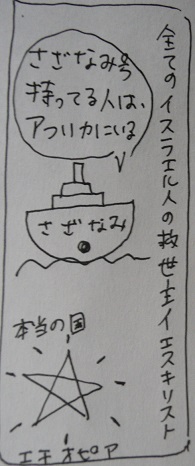 全てのイスラエル人の救世主イエスキリスト
さざなみ号
持ってる人は、
アフリカにいる
さざなみ
本当の国
エチオピア